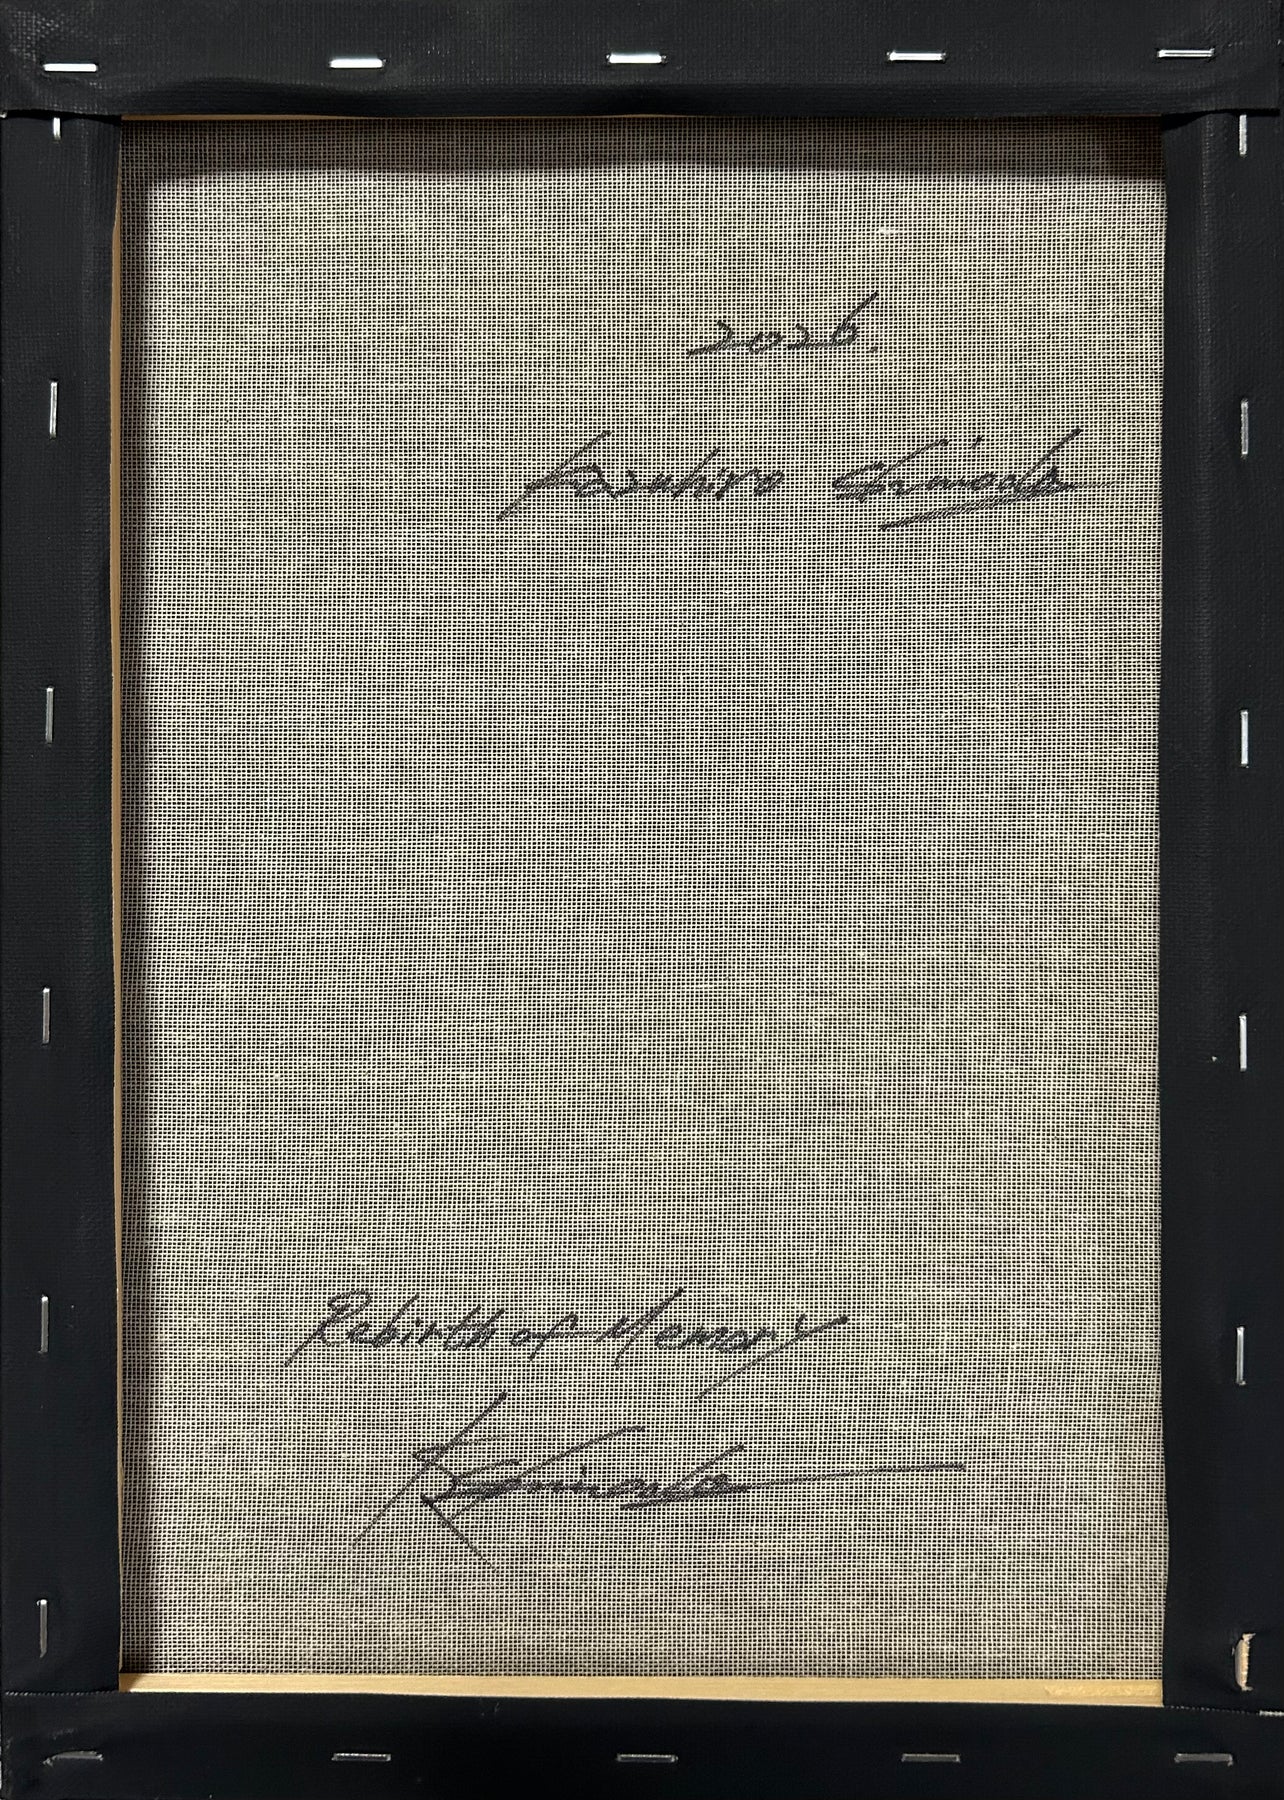 2026.
Kazuhiro Shimoda
Rebirth of Memory
K Shimoda